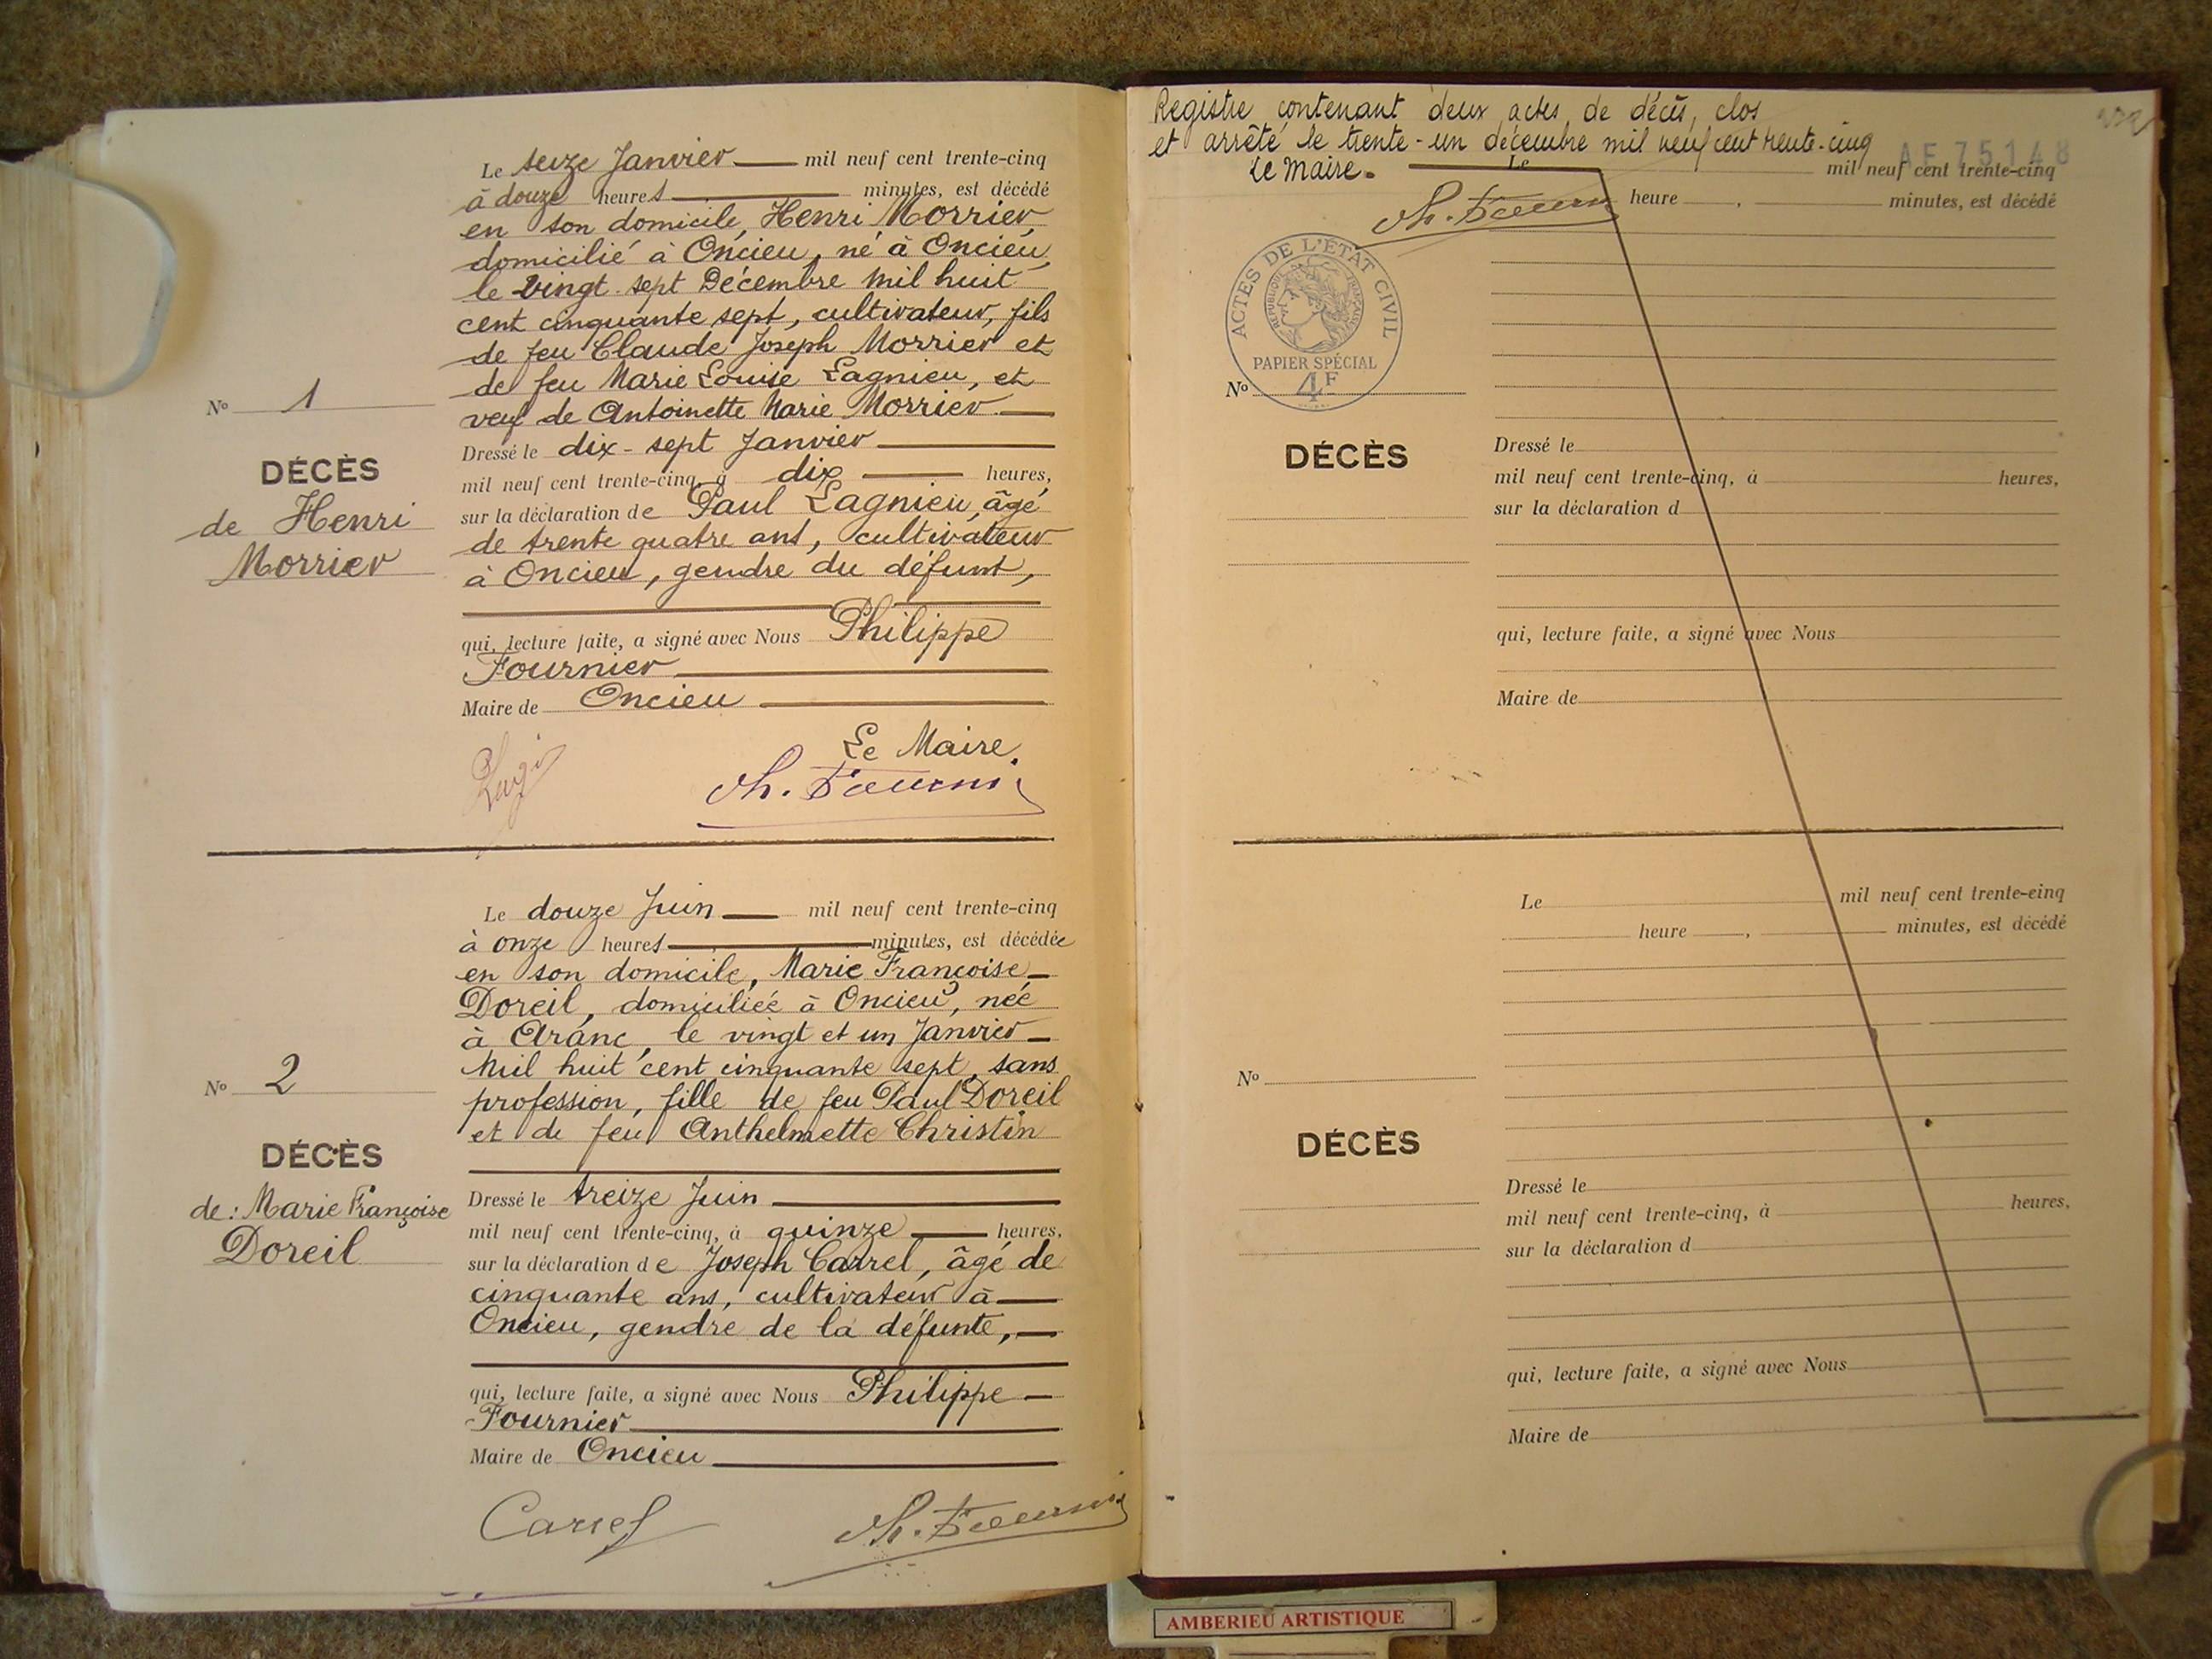 Le seize Janvier mil neuf cent trente-cinq
à douze heures minutes, est décédé
en son domicile, Henri Morrier
domicilié à Oncieu, né à Oncieu,
le vingt-sept Décembre mil huit
cent cinquante sept, cultivateur, fils
de feu Claude Joseph Morrier et
de feu Marie Louise Lagnieu, et
veuf de Antoinette Marie Morrier
Dressé le dix-sept Janvier
mil neuf cent trente-cinq, à dix heures,
sur la déclaration de Paul Lagnieu, âgé
de trente quatre ans, cultivateur
à Oncieu, gendre du défunt,
qui, lecture faite, a signé avec Nous Philippe
Fournier
Maire de Oncieu
Le Maire.
Ph. Fournier
No 1
DÉCÈS
de Henri
Morrier
Le douze Juin mil neuf cent trente-cinq
à onze heures minutes, est décédée
en son domicile, Marie Françoise
Doreil, domiciliée à Oncieu, née
à Aranc, le vingt et un Janvier
mil huit cent cinquante sept, sans
profession, fille de feu Paul Doreil
et de feu Anthelmette Christin
Dressé le treize Juin
mil neuf cent trente-cinq, à quinze heures,
sur la déclaration de Joseph Carrel, âgé de
cinquante ans, cultivateur à
Oncieu, gendre de la défunte,
qui, lecture faite, a signé avec Nous Philippe
Fournier
Maire de Oncieu
Carrel Ph. Fournier
No 2
DÉCÈS
de : Marie Françoise
Doreil
Registre contenant deux actes de décès, clos
et arrêté le trente-un décembre mil neuf cent trente-cinq
Le Maire.
Ph. Fournier
AE 75148
Le mil neuf cent trente-cinq
heure , minutes, est décédé
ACTES DE L'ÉTAT CIVIL
RÉPUBLIQUE FRANÇAISE
PAPIER SPÉCIAL
4F
No
DÉCÈS
Dressé le
mil neuf cent trente-cinq, à heures,
sur la déclaration d
qui, lecture faite, a signé avec Nous
Maire de
Le mil neuf cent trente-cinq
heure , minutes, est décédé
No
DÉCÈS
Dressé le
mil neuf cent trente-cinq, à heures,
sur la déclaration d
qui, lecture faite, a signé avec Nous
Maire de
AMBERIEU ARTISTIQUE